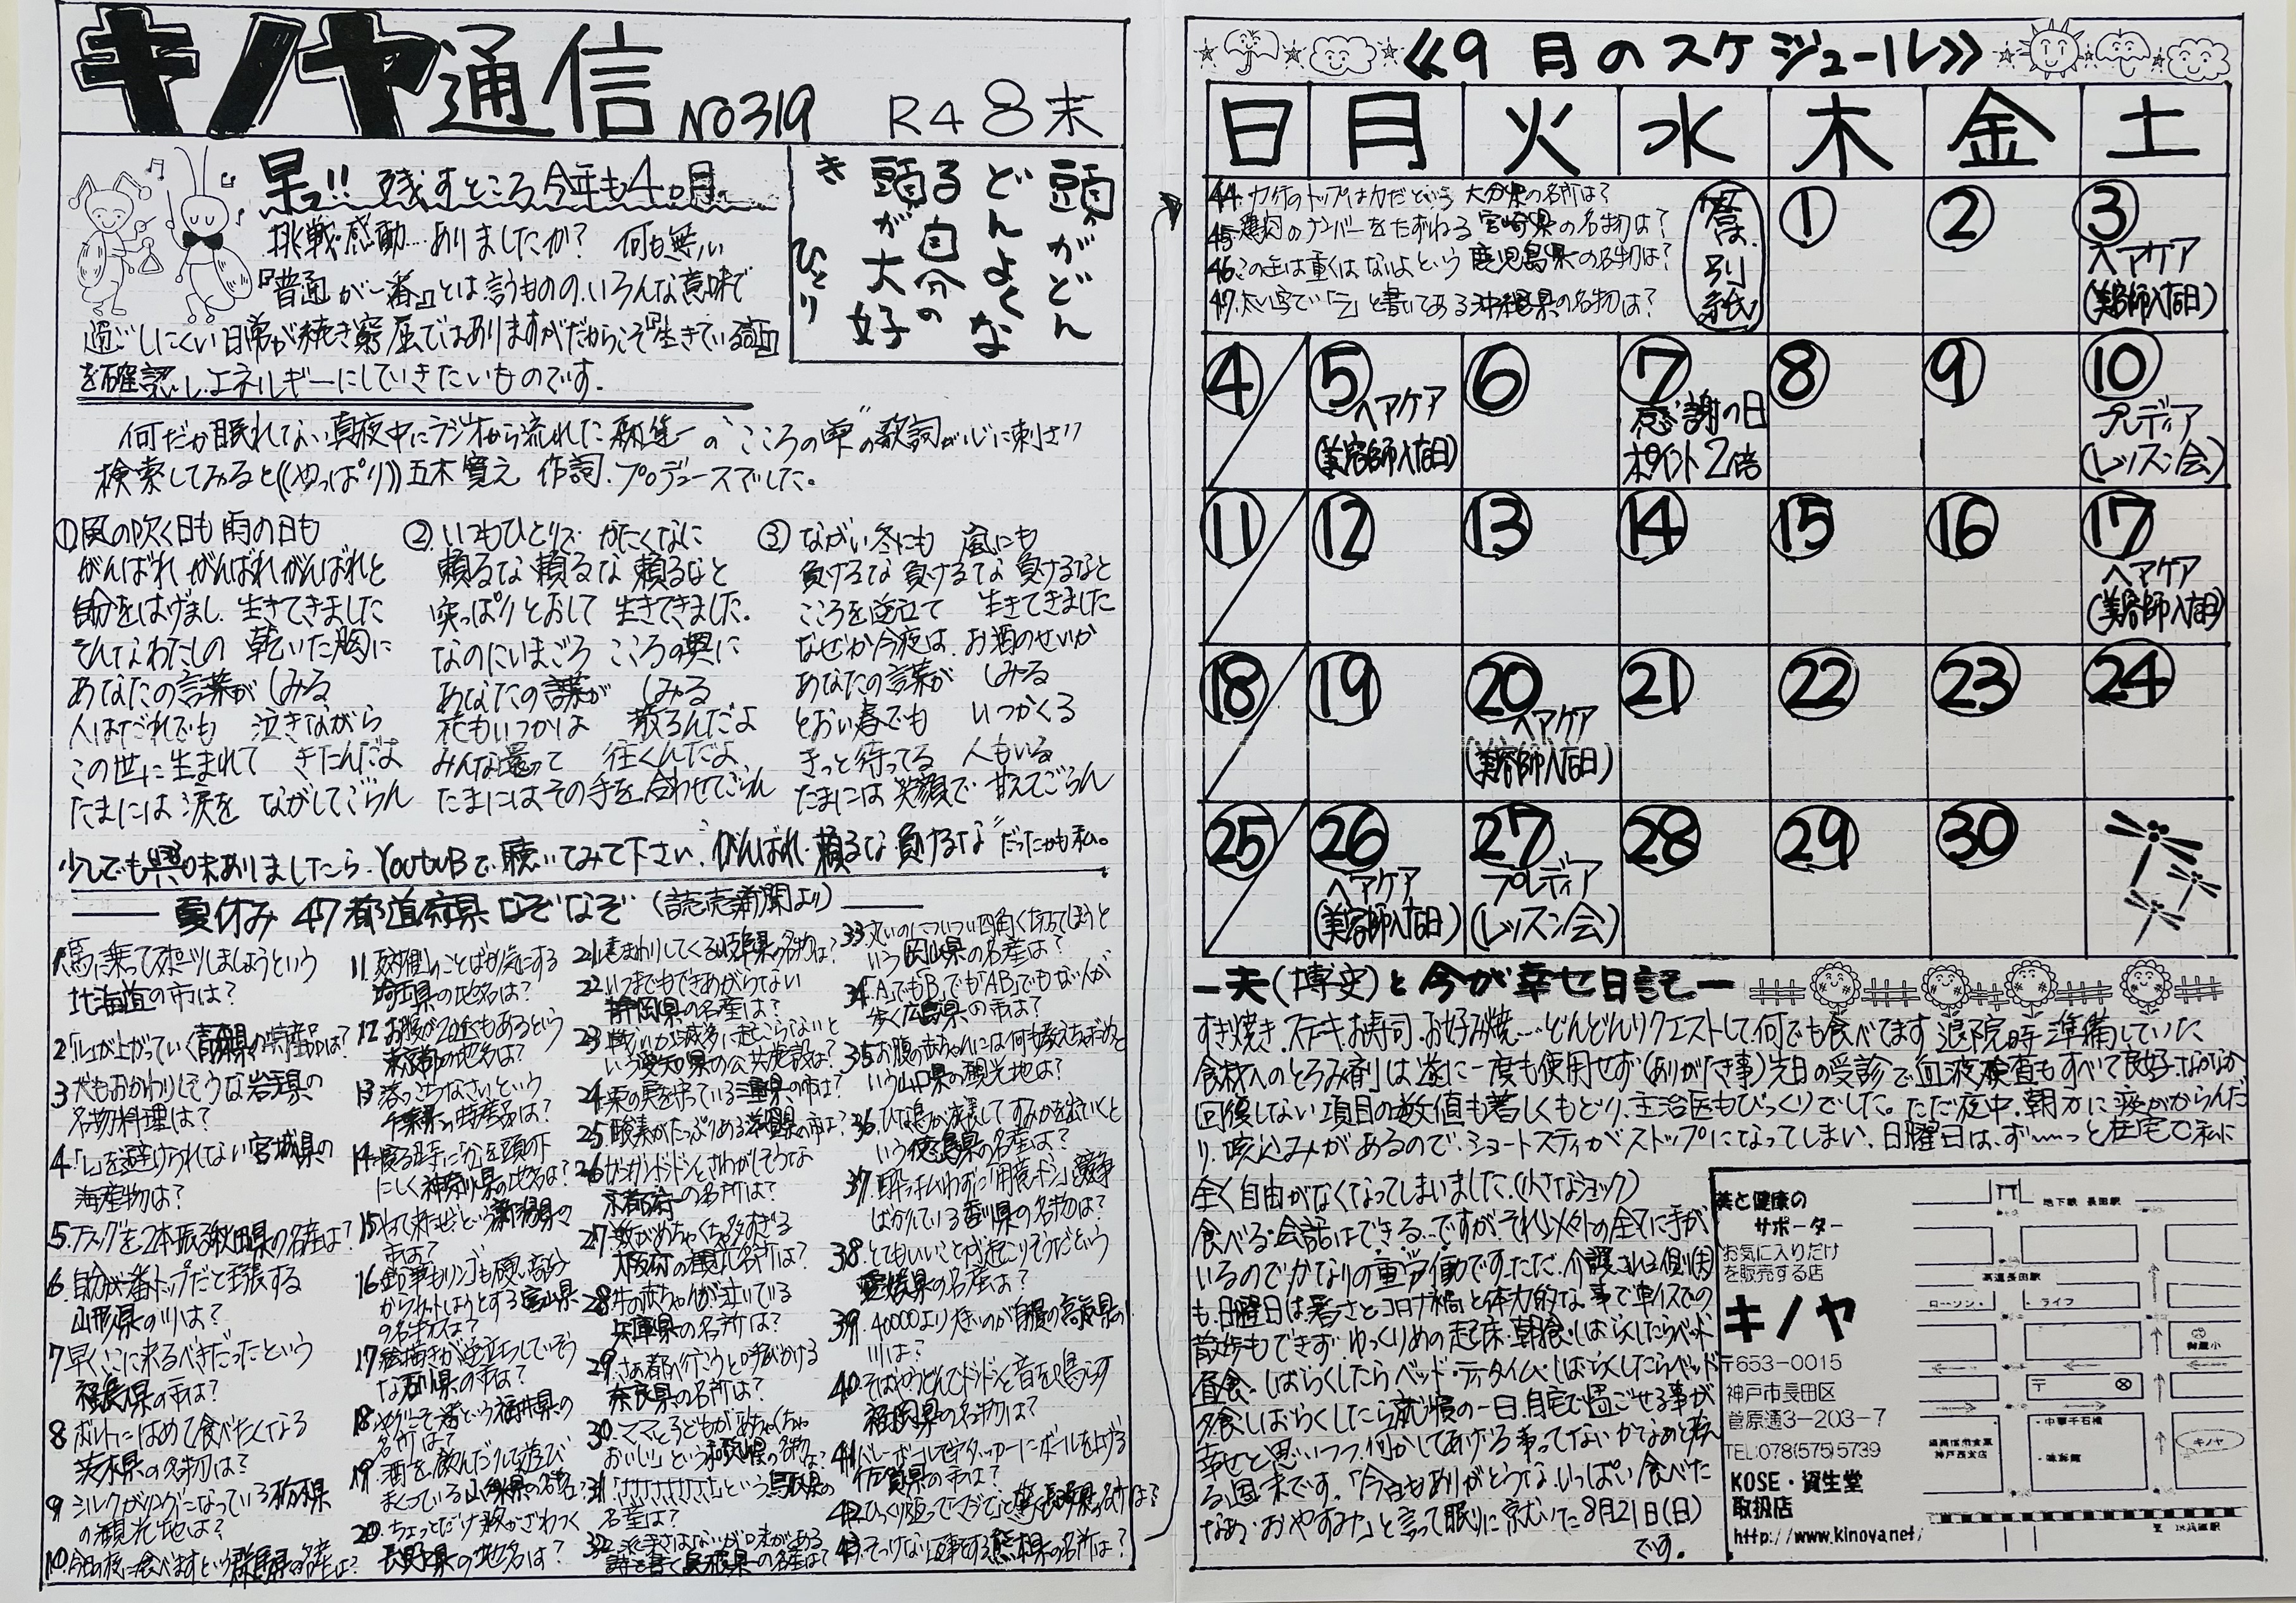 キノヤ通信 NO319 R4 8末
早っ!! 残すところ今年も4ヶ月
挑戦・感動…ありましたか? 何も無い
『普通が一番』とは言うものの、いろんな意味で
過ごしにくい日常が続き窮屈ではありますがだからこそ『生きている証』
を確認し、エネルギーにしていきたいものです。
頭がどん
どんよくな
る自分の
頭が大好
き ひとり
何だか眠れてない真夜中にラジオから流れた 森進一の "こころの雫" の歌詞が心に刺さり
検索してみると((やっぱり)) 五木寛之 作詞.プロデュースでした。
①風の吹く日も 雨の日も
がんばれ がんばれ がんばれと
自分をはげまし 生きてきました
そんなわたしの 乾いた胸に
あなたの言葉が しみる
人はだれでも 泣きながら
この世に生まれて きたんだよ
たまには涙を ながしてごらん
② いつもひとりで かたくなに
頼るな 頼るな 頼るなと
突っぱりとおして 生きてきました。
なのにいまごろ こころの奥に
あなたの言葉が しみる
花もいつかは 散るんだよ
みんな還って 往くんだよ
たまにはその手を 合わせてごらん
③ ながい冬にも 嵐にも
負けるな 負けるな 負けるなと
こころを逆立て 生きてきました
なぜか今夜は お酒のせいか
あなたの言葉が しみる
とおい春でも いつかくる
きっと待ってる 人もいる
たまには笑顔で 甘えてごらん
少しでも興味ありましたら、YouTuBで聴いてみて下さい。"がんばれ・頼るな・負けるな" だったかも私。
夏休み 47都道府県なぞなぞ (読売新聞より)
1.馬に乗ってスポーツしましょうという
北海道の市は?
2「し」が上がっていく青森県の特産品は?
3 犬もおかわりしそうな岩手県の
名物料理は?
4.「し」を避けられない宮城県の
海産物は?
5.フラッグを2本振る秋田県の名産は?
6.自分が一番トップだと主張する
山形県の川は?
7 早くここに来るべきだったという
福島県の市は?
8 ボルトにはめて食べたくなる
茨木県の名物は?
9 シルクがリングになっている栃木県
の観光地は?
10.今日の夜に食べますという群馬県の名産は?
11.
埼玉県の地名は?
12 お腹が20丘もあるという
東京都の地名は?
13 落っこちなさいという
千葉県の特産物は?
14.寝る時に「公」を頭の下
にしく神奈川県の地名は?
15 という新潟県の
市は?
16 鉛筆もリンゴも硬い部分
からカットしようとする富山県
の名物は?
17 絵描きが逆立ちしていそう
な石川県の市は?
18 という福井県の
名所は?
19 酒を飲んだりして遊び
まくっている山梨県の名産は?
20.ちょっとだけ教がざわつく
長野県の地名は?
21 遠まわりしてくる岐阜県の名物は?
22.いつまでもできあがらない
静岡県の名産は?
23 戦いが滅多に起こらないと
いう愛知県の公共施設は?
24.栗の実を守っている三重県の市は?
25 酸素がたっぷりある滋賀県の市は?
26 ガンガンドンドンとさわがしそうな
京都府の名所は?
27.数がめちゃくちゃ多すぎる
大阪府の観光名所は?
28 牛の赤ちゃんが泣いている
兵庫県の名所は?
29.さあ都へ行こうと呼びかける
奈良県の名所は?
30.ママと子どもが「めちゃくちゃ
おいしい」という和歌山県の名物は?
31 「ナナナナナナナナ」という鳥取県の
名産は?
32 派手さはないが味がある
詩を書く島根県の名産は?
33.丸いのについつい四角く切ってしまうと
いう岡山県の名産は?
34「A」でも「B」でも「AB」でもない人が
歩く広島県の市は?
35 お腹の赤ちゃんには何も教えちゃだめと
いう山口県の観光地は?
36.ひな鳥が成長してすみかを出ていくと
いう徳島県の名産は?
37 酔っ払わずに「用意ドン」と競争
ばかりしている香川県の名物は?
38.とてもいいことが起こりそうだという
愛媛県の名産は?
39.40000より大きいのが自慢の高知県の
川は?
40.そばやうどんでドンドンと音を鳴らす
福岡県の名物は?
41 バレーボールでアタッカーにボールを上げる
佐賀県の市は?
42.ひっくり返って「マジで」と驚く長崎県の名所は?
43.そっけない返事をする熊本県の名所は?
≪9月のスケジュール≫
日 月 火 水 木 金 土
44.カケのトップはカだという 大分県の名所は?
45.鶏肉のナンバーをたずねる 宮崎県の名物は?
46.この缶は重くはないよという 鹿児島県の名物は?
47.太い字で「ラ」と書いてある沖縄県の名物は?
答は.別紙
① ② ③
ヘアケア
(美容師入店日)
④ ⑤ ⑥ ⑦ ⑧ ⑨ ⑩
ヘアケア
(美容師入店日)
感謝の日
ポイント2倍
プレディア
(レッスン会)
⑪ ⑫ ⑬ ⑭ ⑮ ⑯ ⑰
ヘアケア
(美容師入店日)
⑱ ⑲ ⑳ ㉑ ㉒ ㉓ ㉔
ヘアケア
(美容師入店日)
㉕ ㉖ ㉗ ㉘ ㉙ ㉚
ヘアケア
(美容師入店日)
プレディア
(レッスン会)
ー夫(博史)と今が幸せ日記ー
すき焼き.ステーキ.お寿司.お好み焼……どんどんリクエストして、何でも食べてます 退院時 準備していた
食材へのとろみ剤は遂に一度も使用せず(ありがたき事)先日の受診で血液検査もすべて良好.なかなか
回復しない項目の数値も著しくもどり、主治医もびっくりでした。ただ夜中、朝方に痰がからんだ
り、咳込みがあるので、ショートスティがストップになってしまい、日曜日は、ず〜〜っと在宅で私に
全く自由がなくなってしまいました。(小さなショック)
食べる・会話はできる…ですが、それ以外の全てに手が
いるのでかなりの重労働です。ただ、介護される側(夫)
も、日曜日は暑さとコロナ禍と体力的な事で車イスでの
散歩もできず、ゆっくりめの起床・朝食・しばらくしたらベッド
昼食・しばらくしたらベッド・ティタイム・しばらくしたらベッド
夕食しばらくしたら就寝の一日.自宅で過ごせる事が
幸せと思いつつ、何かしてあげる事ってないかなぁと悩
る週末です。「今日もありがとうな、いっぱい食べた
なあ・おやすみた」と言って眠りに就いた8月21日(日)
です。
美と健康の
サポーター
お気に入りだけ
を販売する店
キノヤ
〒653-0015
神戸市長田区
菅原通3-203-7
TEL:078(575)5739
KOSE・資生堂
取扱店
http://www.kinoya.net/
地下鉄 長田駅
高速長田駅
ローソン・
・ライフ
御蔵小
〒
・中華千石楼
キノヤ
神戸西支店
・味彩館